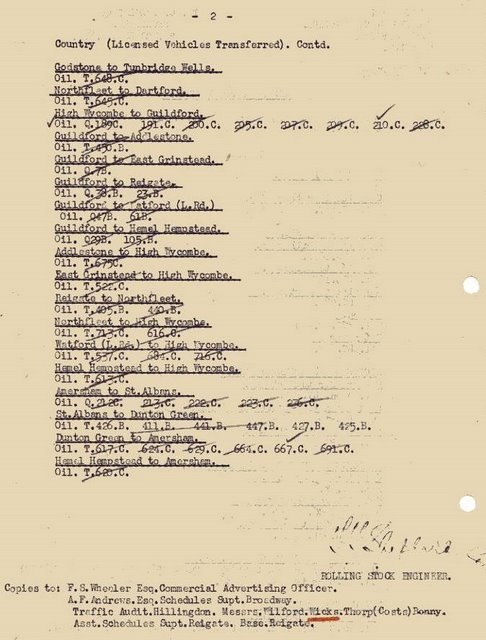 - 2 -
Country (Licensed Vehicles Transferred). Contd.
Godstone to Tunbridge Wells.
Oil. T.648.C.
Northfleet to Dartford.
Oil. T.645.C.
High Wycombe to Guildford.
Oil. Q.189C. 191.C. 200.C. 205.C. 207.C. 209.C. 210.C. 228.C.
Guildford to Addlestone.
Oil. T.450.B.
Guildford to East Grinstead.
Oil. Q.7B.
Guildford to Reigate.
Oil. Q.38.B. 23.B.
Guildford to Watford (L.Rd.)
Oil. Q47B. 61B.
Guildford to Hemel Hempstead.
Oil. Q29B. 105.B.
Addlestone to High Wycombe.
Oil. T.675C.
East Grinstead to High Wycombe.
Oil. T.522.C.
Reigate to Northfleet.
Oil. T.405.B. 440.B.
Northfleet to High Wycombe.
Oil. T.713.C. 616.C.
Watford (L.Rd.) to High Wycombe.
Oil. T.557.C. 684.C. 716.C.
Hemel Hempstead to High Wycombe.
Oil. T.613.C.
Amersham to St.Albans.
Oil. Q.212C. 213.C. 222.C. 223.C. 226.C.
St.Albans to Dunton Green.
Oil. T.426.B. 411.B. 441.B. 447.B. 427.B. 425.B.
Dunton Green to Amersham.
Oil. T.617.C. 624.C. 629.C. 664.C. 667.C. 691.C.
Hemel Hempstead to Amersham.
Oil. T.620.C.
ROLLING STOCK ENGINEER.
Copies to: F.S.Wheeler Esq.Commercial Advertising Officer.
A.F.Andrews.Esq.Schedules Supt.Broadway.
Traffic Audit.Hillingdon. Messrs.Wilford.Wicks.Thorp(Costs)Bonny.
Asst.Schedules Supt.Reigate. Base.Reigate.